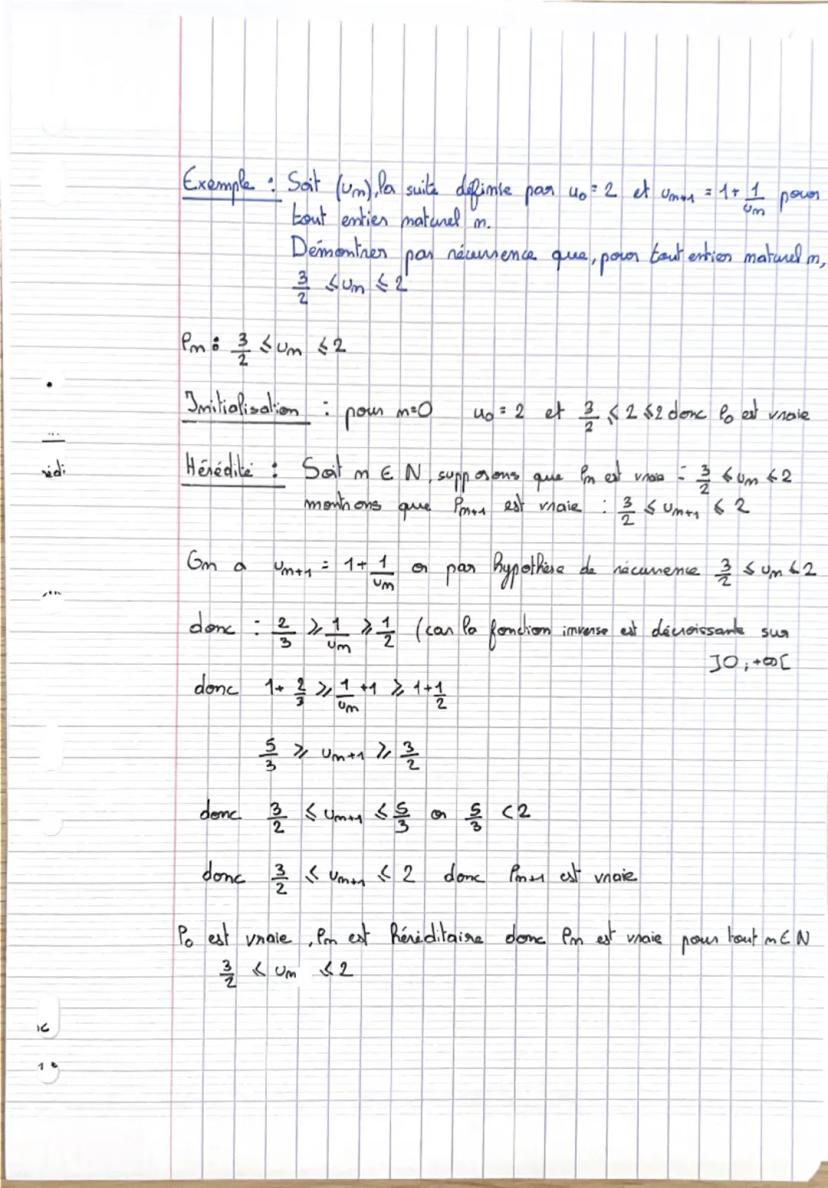 Exemple : Soit (un), la suite définie par u0 = 2 et un+1 = 1 + 1/un pour
tout entier naturel n.
Démontrer par récurrence que, pour tout entier naturel n,
3/2 ≤ un ≤ 2
Pn : 3/2 ≤ un ≤ 2
Initialisation : pour n=0 u0 = 2 et 3/2 ≤ 2 ≤ 2 donc P0 est vraie
Hérédité : Soit n ∈ N, supposons que Pn est vraie : 3/2 ≤ un ≤ 2
montrons que Pn+1 est vraie : 3/2 ≤ un+1 ≤ 2
On a un+1 = 1 + 1/un or par hypothèse de récurrence 3/2 ≤ un ≤ 2
donc : 2/3 ≥ 1/un ≥ 1/2 (car la fonction inverse est décroissante sur
]0 ; +∞[
donc 1 + 2/3 ≥ 1/un + 1 ≥ 1 + 1/2
5/3 ≥ un+1 ≥ 3/2
donc 3/2 ≤ un+1 ≤ 5/3 or 5/3 < 2
donc 3/2 ≤ un+1 ≤ 2 donc Pn+1 est vraie
P0 est vraie, Pn est héréditaire donc Pn est vraie pour tout n ∈ N
3/2 ≤ un ≤ 2